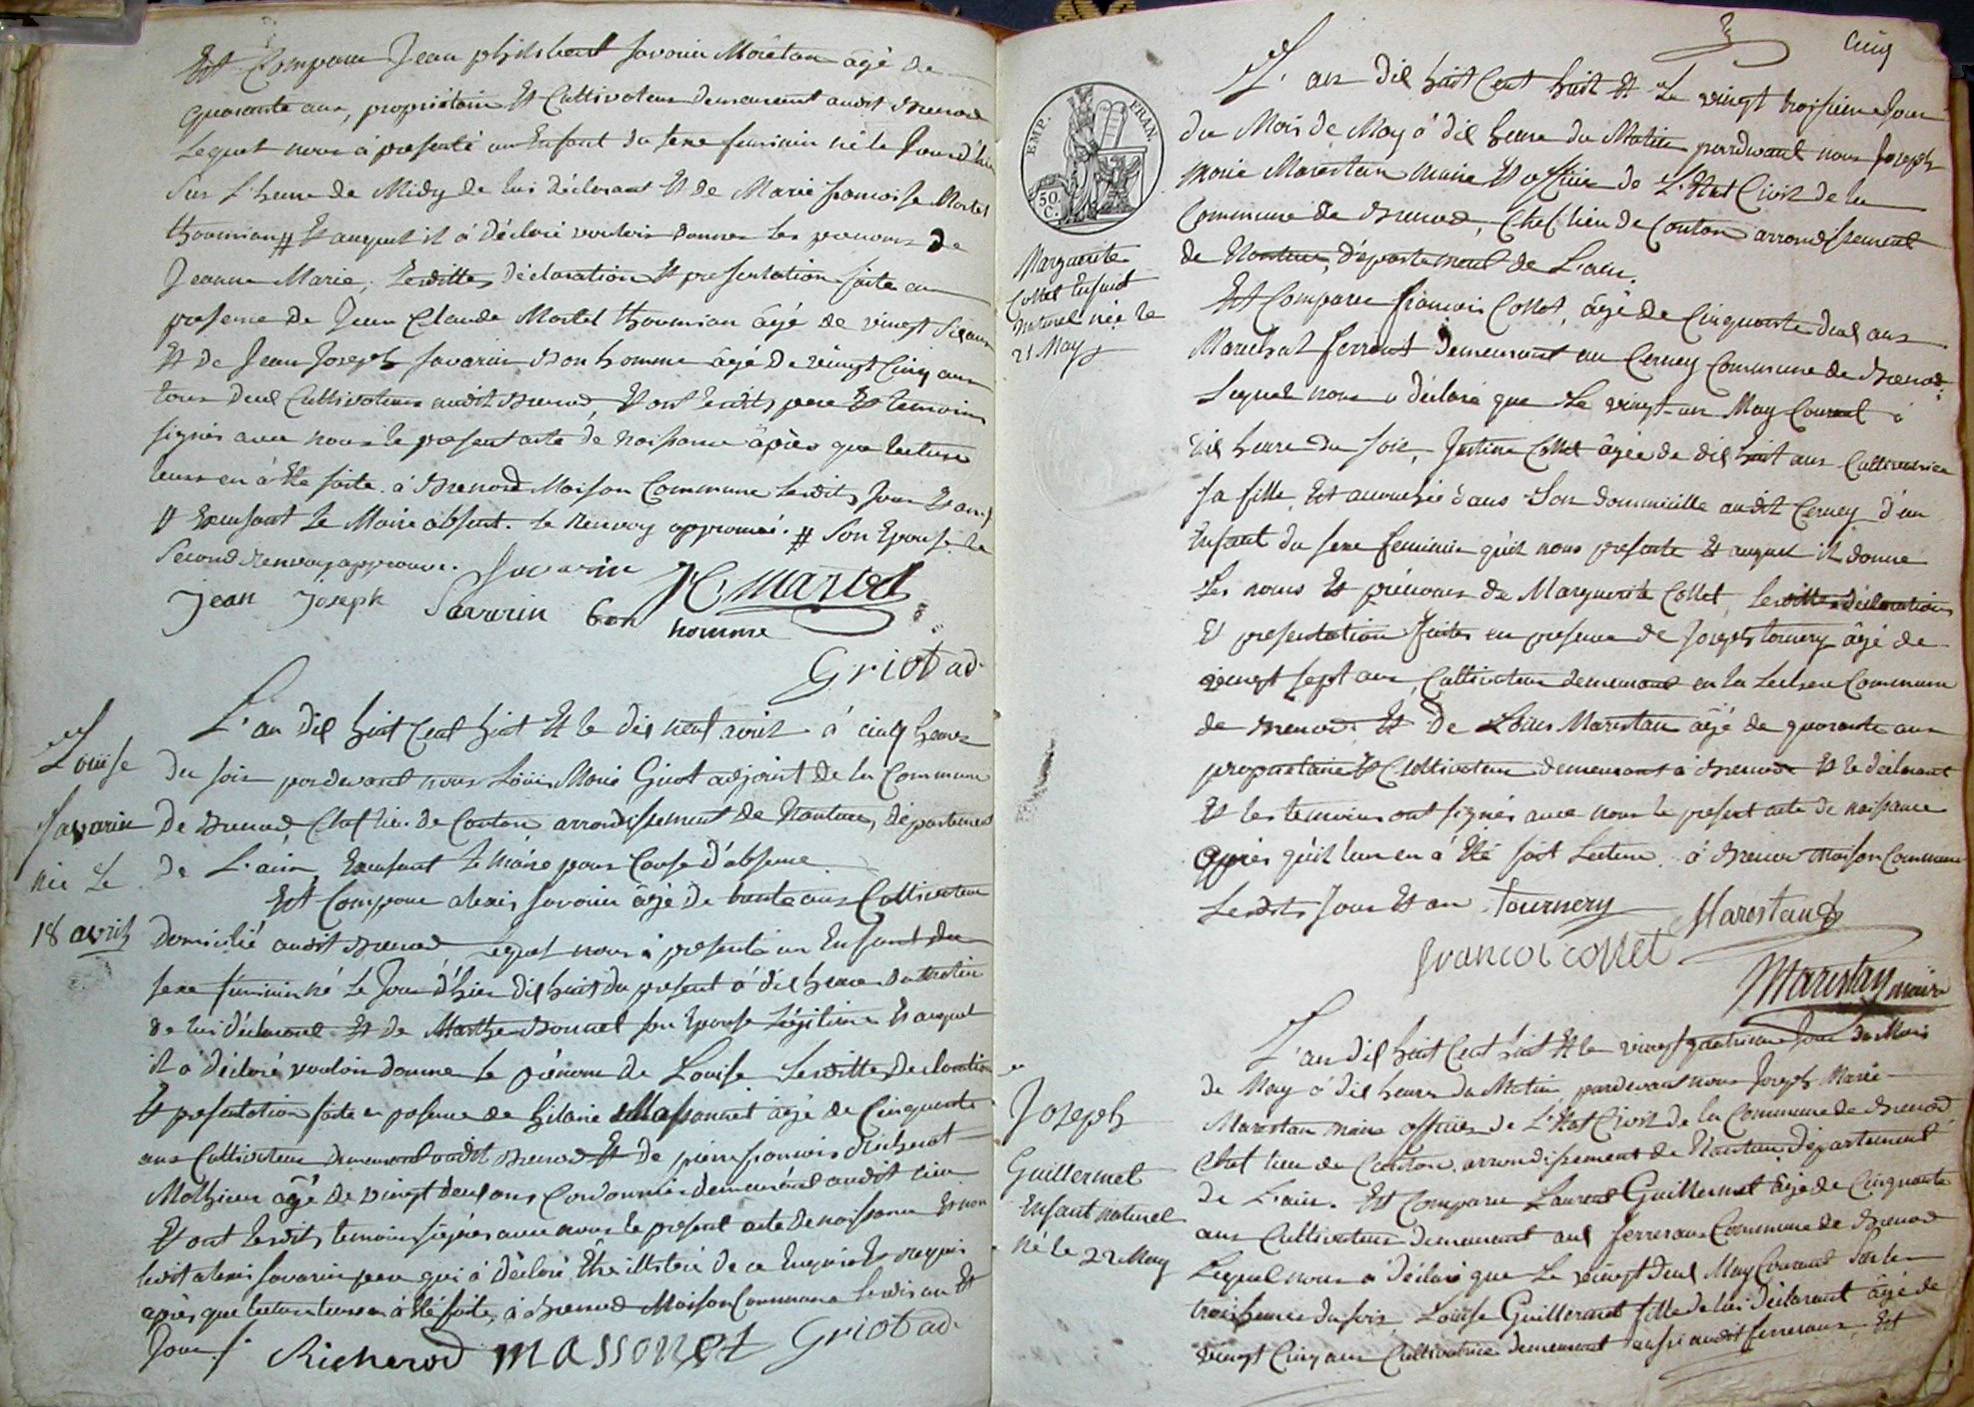 Est Comparu Jean philibert Savarin Moiretan âgé de
quarante ans, propriétaire Et Cultivateur demeurant audit Brenod
Lequel nous à présenté un Enfant du sexe feminin né le Jourd'hui
Sur L'heure de Midy de lui déclarant Et de Marie françoise Martel
thoumian # Et auquel il à déclaré vouloir donner les prenoms de
Jeanne Marie, Lesdittes déclaration Et presentation faite en
presence de Jean Claude Martel thoumian âgé de vingt six ans
Et de Jean Joseph Savarin Bon homme âgé de vingt Cinq ans
tous deux Cultivateurs audit Brenod, Et ont lesdits pere Et temoins
signés avec nous le present acte de naissance âpres que lecture
leurs en à été faite. à Brenod Maison Commune Lesdits Jour Et an
# Exusant Le Maire absent. le Renvoy approuvé. # Son Epouse le
Second Renvoy approuvé. Savarin JC Martel
Jean Joseph Savarin bon
homme
Griot ad.
Louise
Savarin
née Le
18 avril
L'an dix huit Cent huit Et le dix neuf avril à cinq heures
du soir pardevant nous Loüis Marie Griot adjoint de la Commune
de Brenod Chef lieu de Canton arrondissement de Nantua, département
de L'ain, Exusant le Maire pour Cause d'absence
Est Comparu alexis Savarin âgé de trente ans Cultivateur
domicilié audit Brenod Lequel nous à présenté un Enfant du
sexe feminin né Le Jour d'hier dix huit du present à dix heures du matin
de lui déclarant Et de Marthe Bonnet son Epouse Légitime Et auquel
il à déclaré vouloir donner le prénom de Louise Lesdittes déclaration
Et presentation faite en presence de hilaire Massonnet âgé de Cinquante
ans Cultivateur demeurant audit Brenod Et de pierre françois Richerot
Mathieu âgé de vingt deux ans Cordonnier demeurant audit lieu
Et ont lesdits temoins signés avec nous le present acte de naissance Et non
ledit alexis Savarin pere qui à déclaré Etre illitéré de ce Enquis Et Requis
après que lecture leur en à été faite, à Brenod Maison Commune Lesdits an Et
Jour. Richerod Massonet Griot ad.
Cinq
EMP. FRAN.
50 C.
Marguerite
Collet Enfant
naturel née le
21 May
L'an dix huit Cent huit Et Le vingt troisieme Jour
du Mois de May à dix heure du Matin pardevant nous Joseph
Marie Marestan Maire Et officier de L'Etat Civil de la
Commune de Brenod, Chef lieu de Canton arrondissement
de Nantua, département de L'ain.
Est Comparu françois Collet, âgé de Cinquante deux ans
Marechal ferrant demeurant au Cerney Commune de Brenod
Lequel nous a déclaré que Le vingt un May Courant à
dix heure du soir, Justine Collet âgée de dix huit ans Cultivatrice
sa fille, Est accouchée dans Son dommicille audit Cerney d'un
Enfant du sexe feminin qu'il nous presente Et auquel il donne
Les noms Et prénoms de Marguerite Collet, Lesdittes déclaration
Et presentation faites en presence de Joseph tournery âgé de
vingt sept ans, Cultivateur demeurant en la Commune
de Brenod. Et De Loüis Marestan âgé de quarante ans
propriétaire Et Cultivateur demeurant à Brenod Et le déclarant
Et les temoins ont signés avec nous le present acte de naissance
Après qu'il leur en à été fait Lecture. à Brenod Maison Commune
Lesdits Jour Et an. Tournery Marestand
francoi collet
Marestan maire
Joseph
Guillermet
Enfant naturel
Né le 22 May
L'an dix huit Cent huit Et le vingt quatrieme Jour du Mois
de May à dix heures du Matin pardevant nous Joseph Marie
Marestan maire officier de L'Etat Civil de la Commune de Brenod
Chef lieu de Canton, arrondissement de Nantua département
de L'ain. Est Comparu Laurent Guillermet âgé de Cinquante
ans Cultivateur demeurant aux ferreraux Commune de Brenod
Lequel nous à déclaré que Le vingt deux May Courant Sur les
trois heures du soir, Loüise Guillermet fille de lui déclarant âgé de
vingt Cinq ans Cultivatrice demeurant aussi audit ferreraux, Est